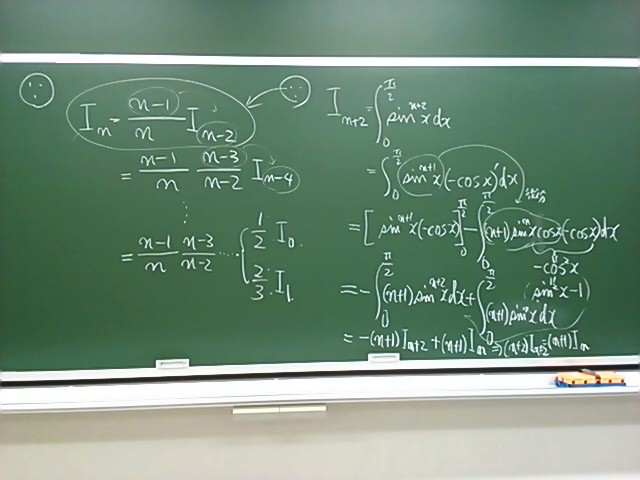 I_n = \frac{n-1}{n} I_{n-2}
= \frac{n-1}{n} \frac{n-3}{n-2} I_{n-4}
⋮
= \frac{n-1}{n} \frac{n-3}{n-2} ⋯ { \frac{1}{2} I_0
\frac{2}{3} I_1
I_{n+2} = ∫_0^{\frac{π}{2}} sin^{n+2} x dx
= ∫_0^{\frac{π}{2}} sin^{n+1} x (-cos x)' dx
= [sin^{n+1} x (-cos x)]_0^{\frac{π}{2}} - ∫_0^{\frac{π}{2}} (n+1) sin^n x cos x (-cos x) dx
-cos^2 x
(sin^2 x - 1)
= -∫_0^{\frac{π}{2}} (n+1) sin^{n+2} x dx + ∫_0^{\frac{π}{2}} (n+1) sin^n x dx
= -(n+1) I_{n+2} + (n+1) I_n ⇒ (n+2) I_{n+2} = (n+1) I_n